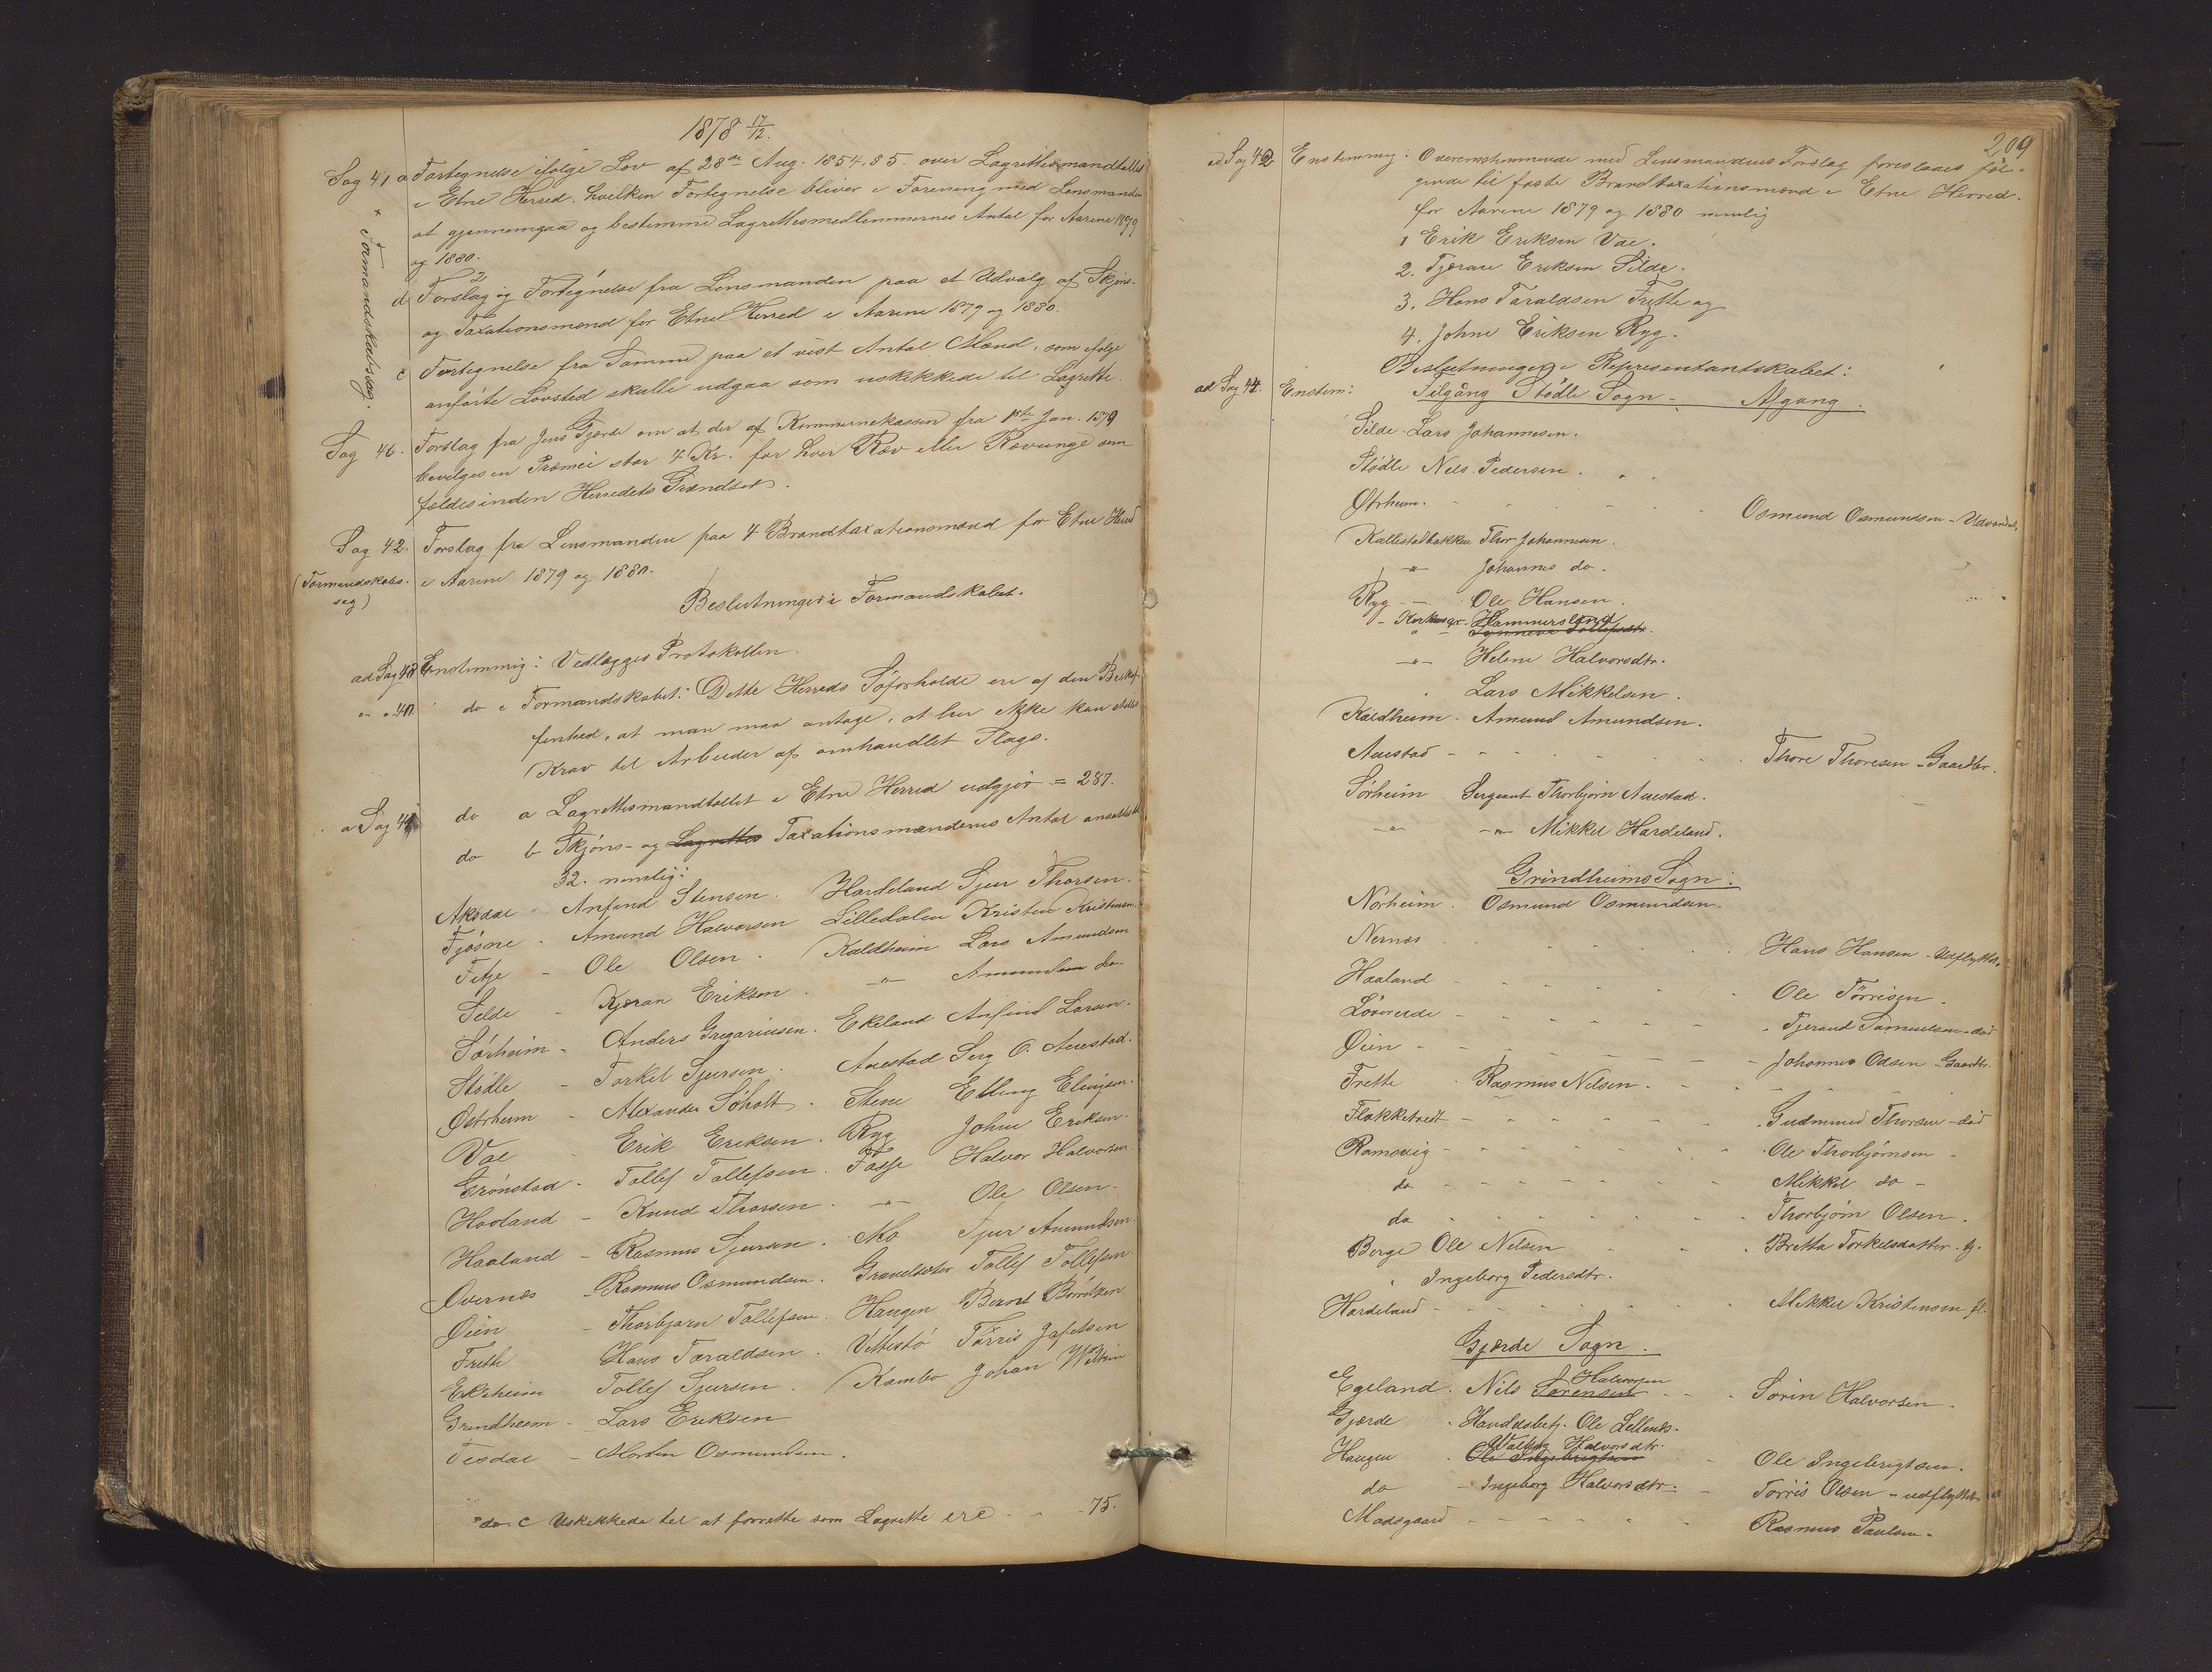 1878 17/12.
Sag 41 a Fortegnelse ifølge Lov af 28de Aug. 1854, § 5. over Lagrettesmandtallet
i Etne Herred, hvelken Fortegnelse bliver i Forening med Lensmanden
at gjennemgaa og bestemme Lagrettesmedlemmernes Antal for Aarene 1879
og 1880.
+ Formandskabssag.
Forslag og Fortegnelse fra Lensmanden paa et Udvalg af Skjøns-
og Taxationsmænd for Etne Herred i Aarene 1879 og 1880.
c Fortegnelse fra Samme paa et vist Antal Mænd, som ifølge
anførte Lovsted skulle udgaa som uskikkede til Lagrette.
Sag 46. Forslag fra Jens Gjærde om at der af Kommunekassen fra 1ste Jan. 1879
bevilges en Præmei stor 4 Kr. for hver Ræv eller Rævunge som
fældes inden Herredets Grændser.
Sag 42. Forslag fra Lensmanden paa 4 Brandtaxationsmænd for Etne Herred
(Formandskabs-
sag)
i Aarene 1879 og 1880.
Beslutninger i Formandskabet.
ad Sag Enstemmig: Vedlægges Protokollen.
" " 40. do i Formandskabet: Dette Herreds Søforholde ere af den Beskaf-
fenhed, at man maa antage, at her ikke kan stilles
Krav til Arbeider af omhandlet Slags.
a Sag 41 do a Lagrettesmandtallet i Etne Herred udgjør = 287.
do b Skjøns- og Lagrettes Taxationsmændenes Antal
32. nemlig:
Aksdal Anfind Stensen. Hardeland Sjur Thorsen.
Fjøsne. Amund Halvorsen Lilledalen Kristen Kristensen.
Fitje - Ole Olsen. Kaldheim Lars Amundsen
Silde - Kjeran Eriksen. -"- Amund do
Sørheim - Anders Gregoriusen. Ekeland Anfind Larsen.
Stødle - Torkel Sjursen. Auestad Serg O. Auestad.
Østrheim - Alexander Søholt. Stene Elling Elingsen.
Vae - Erik Eriksen. Ryg Johne Eriksen.
Grønstad - Tollef Tollefsen. Fosse Halvor Halvorsen.
Haaland - Knud Thorsen. -"- Ole Olsen.
Haaland - Rasmus Sjursen. Mo Sjur Amundsen.
Øvernæs - Rasmus Osmundsen. Gravelsæter Tollef Tollefsen.
Øien - Thorbjørn Tollefsen. Haugen Bernt
Frette Hans Taraldsen. Vettestø Tørris Jafetsen
Ekrheim Tollef Sjursen. Kambo Johan
Grindheim - Lars Eriksen
Tesdal - Morten Osmundsen.
do c Uskikkede til at forrette som Lagrette ere - - 75.
209
ad Sag 42 Enstemmig: Overenstemmende med Lensmandens Forslag foreslaaes føl-
gende til faste Brandtaxationsmænd i Etne Herred
for Aarene 1879 og 1880 nemlig
1 Erik Eriksen Vae.
2. Tjeran Eriksen Silde.
3. Hans Taraldsen Frette og
4. Johne Eriksen Ryg.
Beslutninger i Representantskabet:
ad Sag 44. Enstem: Tilgang Stødle Sogn - Afgang.
Silde - Lars Johannesen.
Stødle Nels Pedersen.
Østrheim. - - - Osmund Osmundsen - Udvandr.
Kallestadbakken Thor Johannesen.
-"- Johannes do.
Ryg - Ole Hansen.
- Kirkesgr. Hammersland
Synneva Tollefsdtr.
-"- Helene Halvorsdtr.
Lars Mikkelsen.
Kaldheim - Amund Amundsen.
Auestad - - - Thore Thoresen - Gaardbr.
Sørheim Sergeant Thorbjørn Auestad.
-"- -"- Mikkel Hardeland.
Grindheims Sogn:
Norheim. Osmund Osmundsen.
Nernæs - - - Hans Hansen - Udflyttet.
Haaland - - - Ole Tørrisen.
- - - Tjerand Samuelsen - død
Øien - - - Johannes Odsen - Gaardbr.
Frette - Rasmus Nelsen. - - -
Flokketvedt - - - Gudmund Thorsen - død
Ramsvig - - - Ole Thorbjørnsen -
do - - - Mikkel do -
do - - - Thorbjørn Olsen.
Berge Ole Nelsen - - - Britta Torkelsdatter. G.
" Ingeborg Pedersdtr.
Hardeland - - - Mikkel Kristensen
Gjerde Sogn.
Egeland. Nils Sørensen Halvorsen - - - Sørin Halvorsen.
Gjerde - Handelsbetj. Ole
Halvorsdtr.
Haugen Ole Ingebrigtsen - Ole Ingebrigtsen.
do - Ingeborg Halvorsdtr. - Tørris Olsen - udflyttet
Madsgaard - - - Rasmus Paulsen -